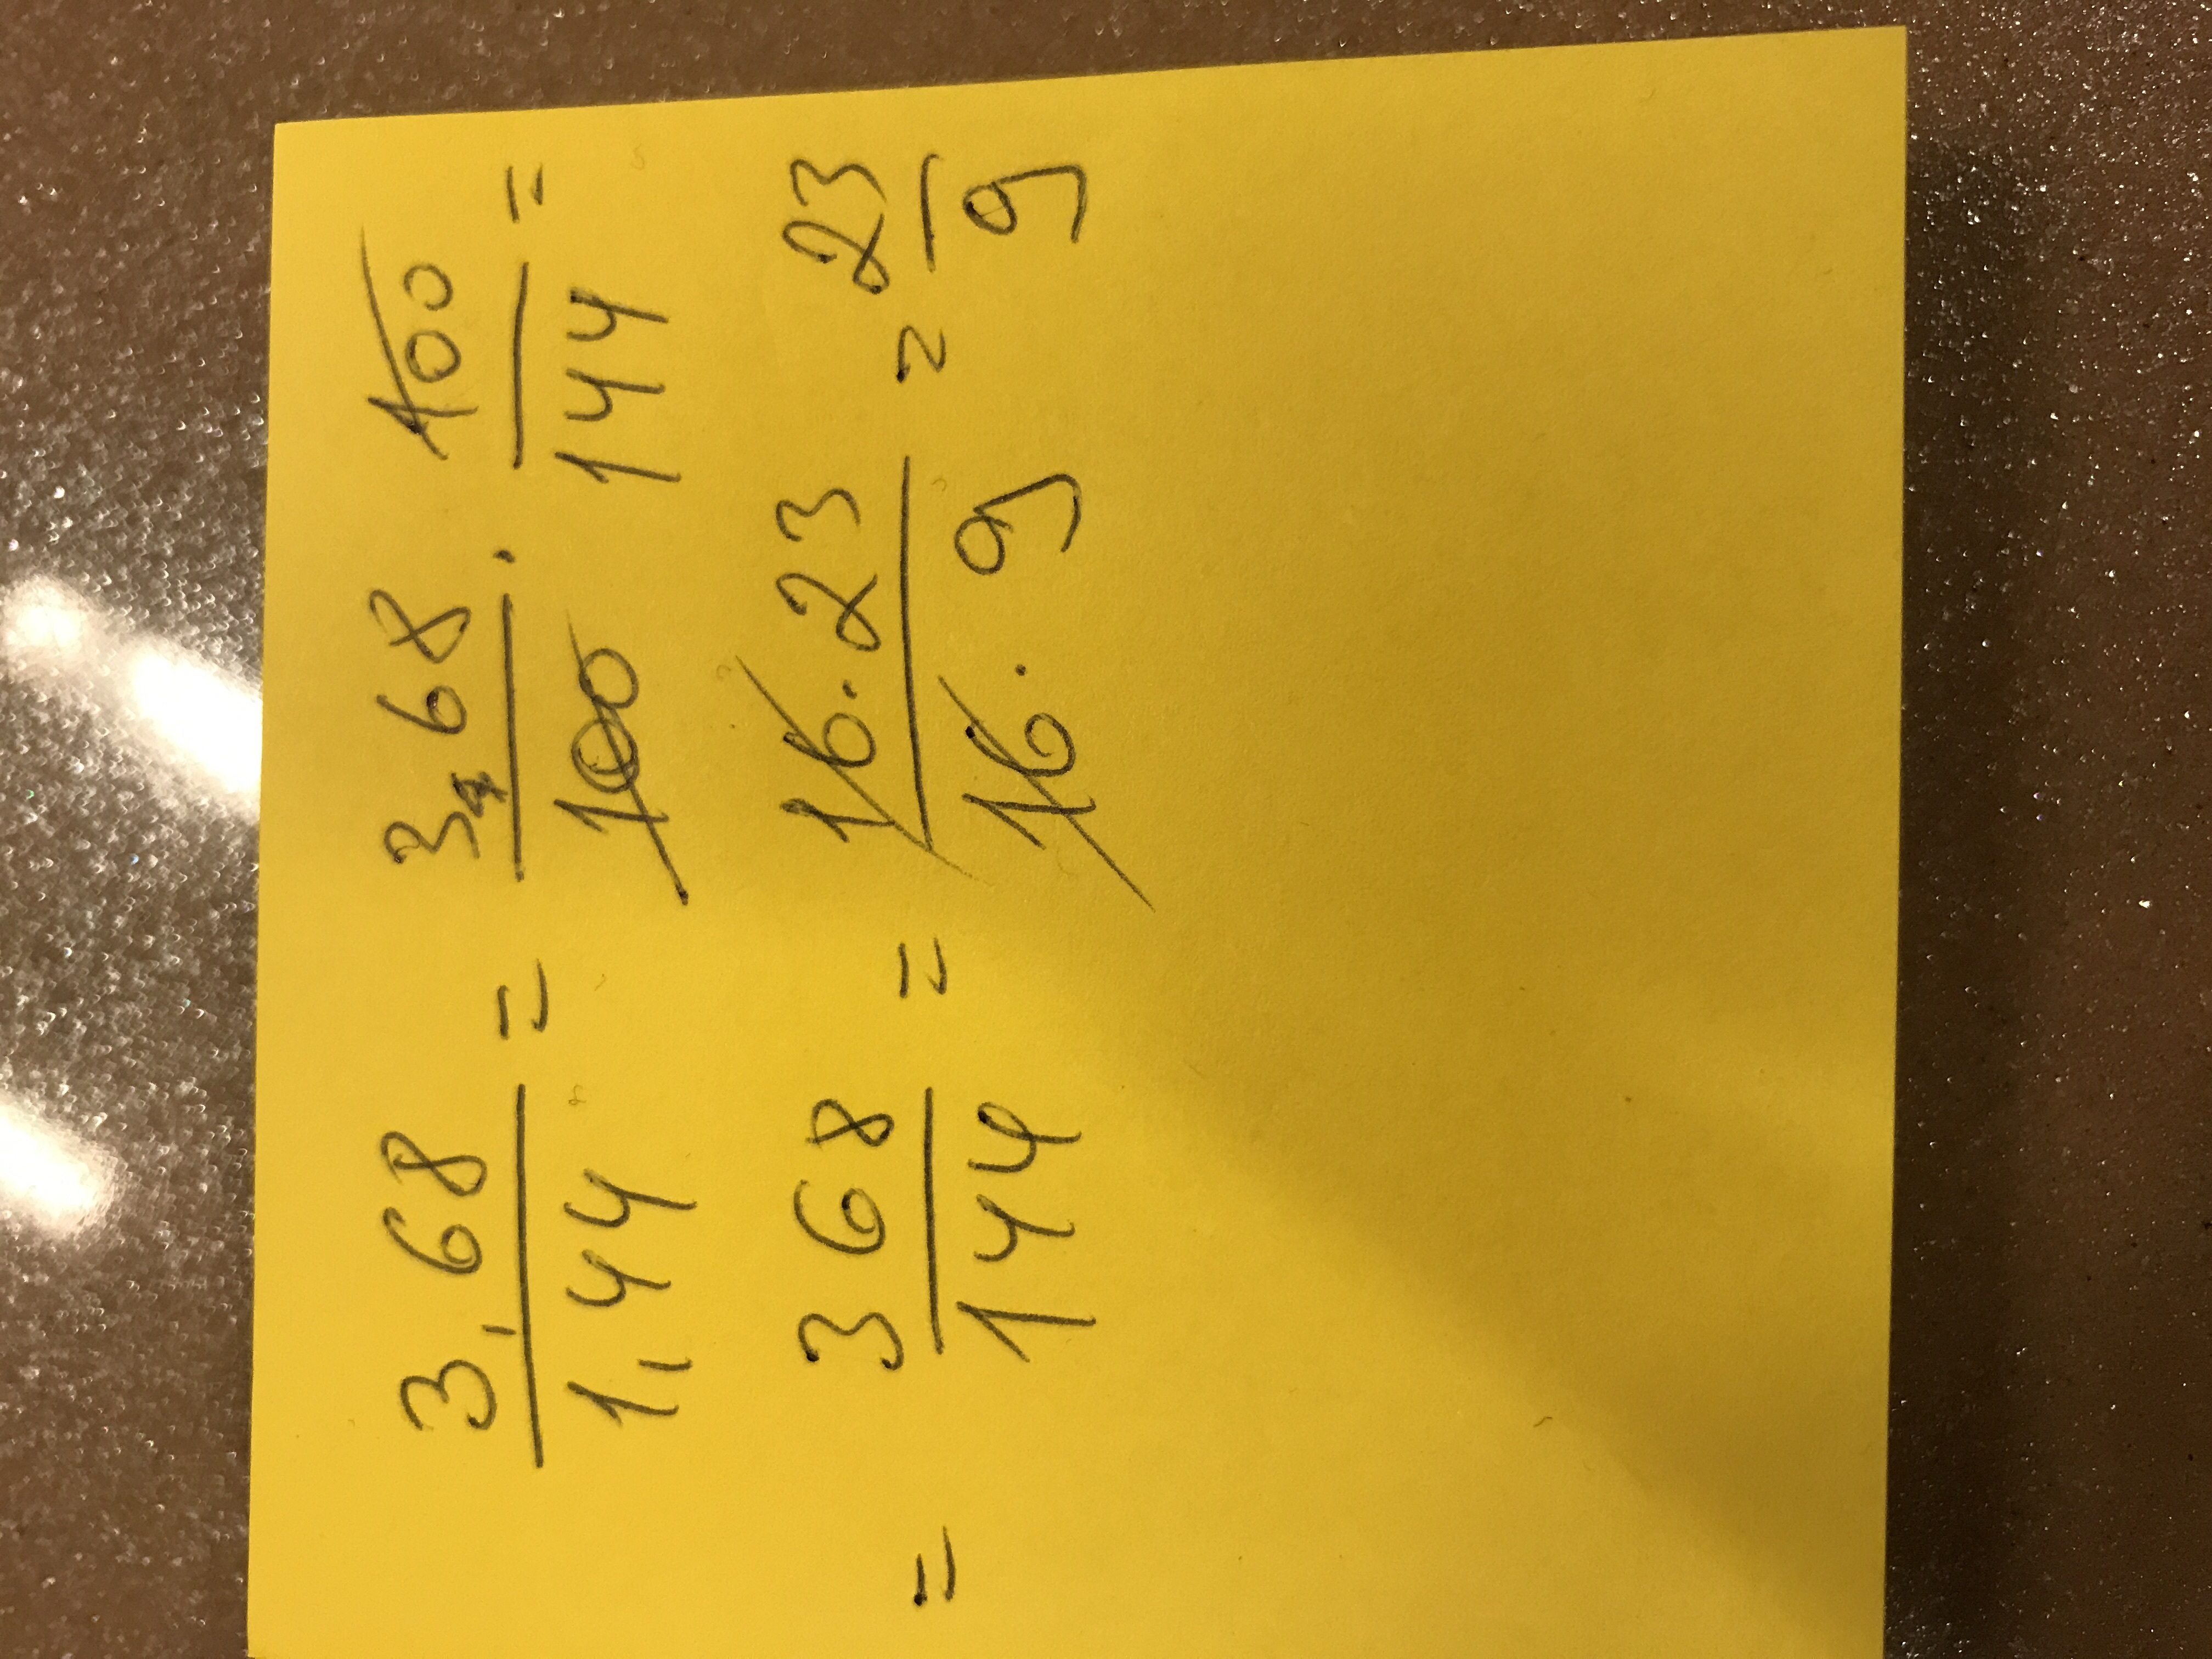 3,68/1,44 = 368/100 · 100/144 =
= 368/144 = 16·23/16·9 = 23/9